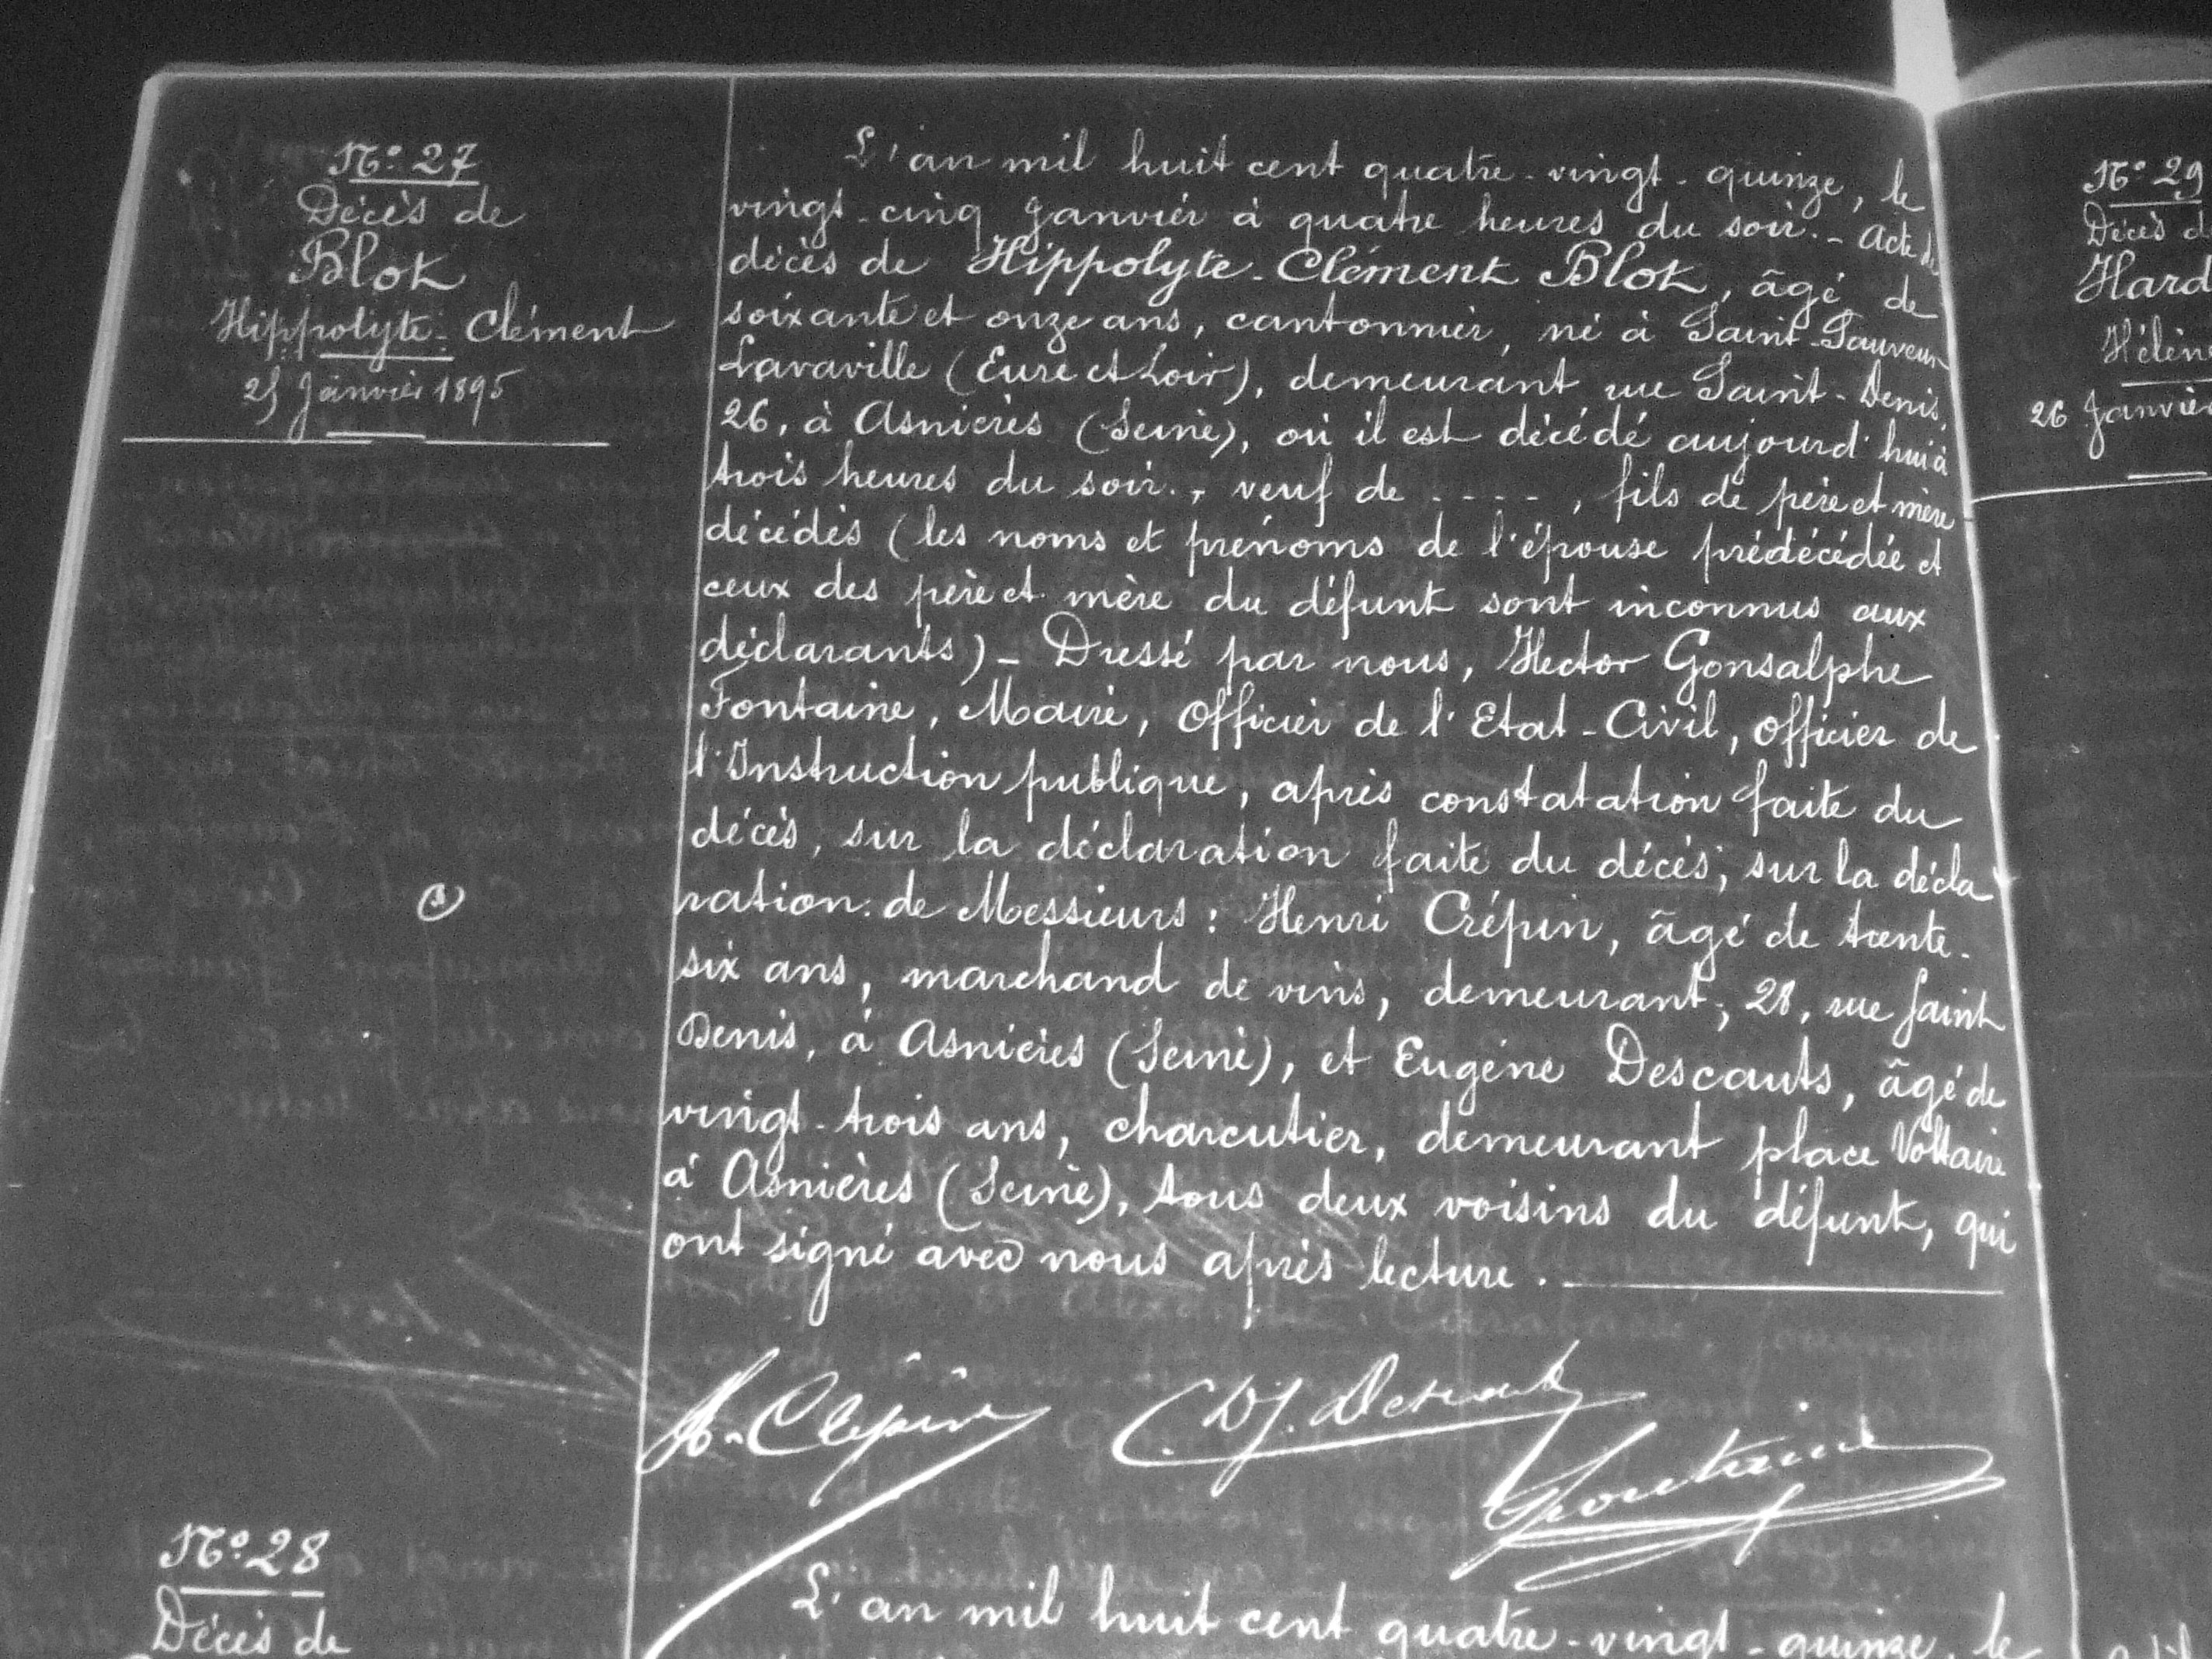 N° 27
Décès de
Blok
Hippolyte-Clément
25 Janvier 1895
L'an mil huit cent quatre-vingt-quinze, le
vingt-cinq Janvier à quatre heures du soir. - Acte de
décès de Hippolyte-Clément Blok, âgé de
soixante et onze ans, cantonnier, né à Saint-Sauveur
Lavaville (Eure et Loir), demeurant rue Saint-Denis,
26, à Asnières (Seine), où il est décédé aujourd'hui à
trois heures du soir., veuf de - - - -, fils de père et mère
décédés (les noms et prénoms de l'épouse prédécédée et
ceux des père et mère du défunt sont inconnus aux
déclarants) - Dressé par nous, Hector Gonsalphe
Fontaine, Maire, Officier de l'Etat-Civil, officier de
l'Instruction publique, après constatation faite du
décès, sur la déclaration faite du décès; sur la décla
ration de Messieurs : Henri Crépin, âgé de trente-
six ans, marchand de vins, demeurant, 28, rue Saint
Denis, à Asnières (Seine), et Eugène Descauts, âgé de
vingt-trois ans, charcutier, demeurant place Voltaire
à Asnières (Seine), tous deux voisins du défunt, qui
ont signé avec nous après lecture.
H. Crépin
Fontaine
N° 28
Décès de
L'an mil huit cent quatre-vingt-quinze, le
N° 29
Décès d
Hard
Hélèn
26 Janvier